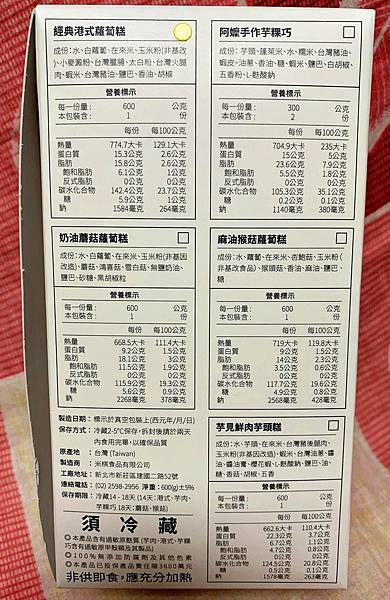 經典港式蘿蔔糕
成份:水、白蘿蔔、在來米、玉米粉(非基改
)、小麥澱粉、台灣臘腸、太白粉、台灣火腿
肉、蝦米、台灣豬油、鹽巴、香油、胡椒
營養標示
每一份量: 600 公克
本包裝含: 1 份
每份 每100公克
熱量 774.7大卡 129.1大卡
蛋白質 15.3公克 2.6公克
脂肪 15.8公克 2.6公克
飽和脂肪 6.1公克 1公克
反式脂肪 0公克 0公克
碳水化合物 142.4公克 23.7公克
糖 5.9公克 1公克
鈉 1584毫克 264毫克
阿嬤手作芋粿巧
成份:水、芋頭、蓬萊米、水、糯米、台灣豬油、
蝦皮、油蔥、香油、糖、蝦米、鹽巴、白胡椒、
五香粉、L-麩酸鈉
營養標示
每一份量: 300 公克
本包裝含: 2 份
每份 每100公克
熱量 704.9大卡 235大卡
蛋白質 15公克 5公克
脂肪 23.6公克 7.9公克
飽和脂肪 5.5公克 1.8公克
反式脂肪 0公克 0公克
碳水化合物 105.3公克 35.1公克
糖 0.2公克 0.1公克
鈉 1140毫克 380毫克
奶油蘑菇蘿蔔糕
成份:水、白蘿蔔、在來米、玉米粉(非基因
改造)、蘑菇、鴻喜菇、雪白菇、無鹽奶油、
鹽巴、砂糖、黑胡椒粒
營養標示
每一份量: 600 公克
本包裝含: 1 份
每份 每100公克
熱量 668.5大卡 111.4大卡
蛋白質 9.2公克 1.5公克
脂肪 18.1公克 3公克
飽和脂肪 11.5公克 1.9公克
反式脂肪 0公克 0公克
碳水化合物 115.9公克 19.3公克
糖 5.6公克 0.9公克
鈉 2268毫克 378毫克
麻油猴菇蘿蔔糕
成份:水、蘿蔔、在來米、杏鮑菇、玉米粉(
非基改食品)、猴頭菇、香油、麻油、鹽巴、
糖
營養標示
每一份量: 600 公克
本包裝含: 1 份
每份 每100公克
熱量 719大卡 119.8大卡
蛋白質 9公克 1.5公克
脂肪 14公克 2.3公克
飽和脂肪 3.5公克 0.6公克
反式脂肪 0公克 0公克
碳水化合物 117.7公克 19.6公克
糖 4.9公克 0.8公克
鈉 2568毫克 428毫克
製造日期: 標示於真空包裝上(西元年/月/日)
保存方式: 冷藏2-5°C保存,拆封後請於兩天
內食用完畢,以確保品質
原產地 : 台灣(Taiwan)
製造商 : 米棋食品有限公司
工廠地址: 新北市新莊區建國二路52號
連絡電話: (02) 2598-2956 淨重:600(g)±5%
保存期限: 冷藏14 - 18天 (14天:港式、芋肉、
芋粿巧 18天:蘑菇、猴菇)
須 冷 藏
◎本產品含有過敏原麩質(芋肉、港式、芋粿
巧含有過敏原甲殼類及其製品)
◎100%無添加防腐劑及其他色素
◎本產品已投保產品責任險3600萬元
非供即食,應充分加熱
芋見鮮肉芋頭糕
成份:水、芋頭、在來米、台灣豬後腿肉、
玉米粉(非基因改造)、蝦米、台灣油蔥、醬
油、醬油膏、櫻花蝦、L-麩酸鈉、鹽巴、油、
糖、香菇、胡椒、五香
營養標示
每一份量: 600 公克
本包裝含: 1 份
每份 每100公克
熱量 662.6大卡 110.4大卡
蛋白質 22.3公克 3.7公克
脂肪 6.7公克 1.1公克
飽和脂肪 4.7公克 0.8公克
反式脂肪 0公克 0公克
碳水化合物 124.5公克 20.8公克
糖 0.5公克 0.1公克
鈉 1578毫克 263毫克